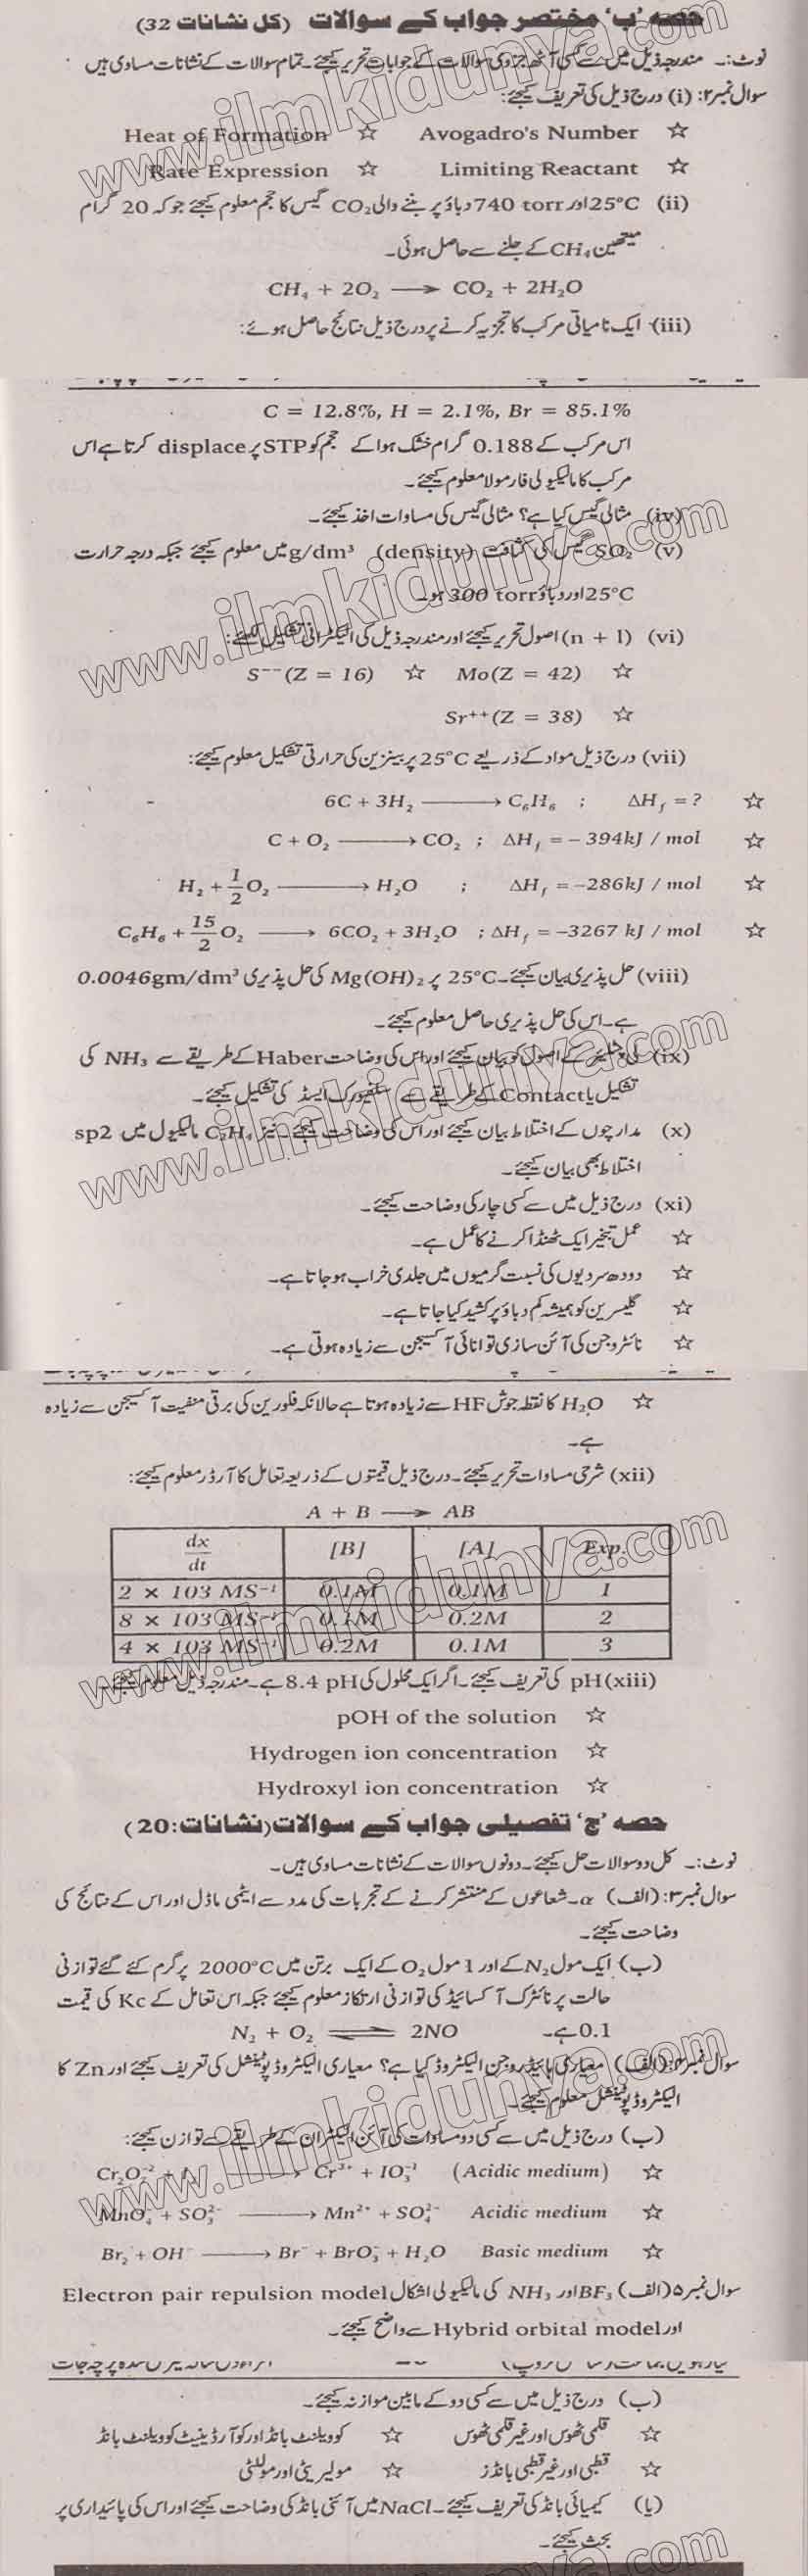 حصہ 'ب' مختصر جواب کے سوالات (کل نشانات 32)
نوٹ:۔ مندرجہ ذیل میں سے کسی آٹھ جزوی سوالات کے جوابات تحریر کیجئے۔ تمام سوالات کے نشانات مساوی ہیں
سوال نمبر۲: (i) درج ذیل کی تعریف کیجئے:
☆ Avogadro's Number ☆ Heat of Formation
☆ Limiting Reactant ☆ Rate Expression
(ii) 25°C اور 740 torr دباؤ پر بننے والی CO₂ گیس کا حجم معلوم کیجئے جو کہ 20 گرام
میتھین CH₄ کے جلنے سے حاصل ہوئی۔
CH₄ + 2O₂ ⟶ CO₂ + 2H₂O
(iii) ایک نامیاتی مرکب کا تجزیہ کرنے پر درج ذیل نتائج حاصل ہوئے:
C = 12.8%, H = 2.1%, Br = 85.1%
اس مرکب کے 0.188 گرام خشک ہوا کے حجم کو STP پر displace کرتا ہے اس
مرکب کا مالیکیولی فارمولا معلوم کیجئے۔
(iv) مثالی گیس کیا ہے؟ مثالی گیس کی مساوات اخذ کیجئے۔
(v) SO₂ گیس کی کثافت (density) g/dm³ میں معلوم کیجئے جبکہ درجہ حرارت
25°C اور دباؤ 300 torr ہو۔
(vi) (n + l) اصول تحریر کیجئے اور مندرجہ ذیل کی الیکٹرانی تشکیل لکھئے:
☆ Mo(Z = 42) ☆ S⁻⁻(Z = 16)
☆ Sr⁺⁺(Z = 38)
(vii) درج ذیل مواد کے ذریعے 25°C پر بینزین کی حرارتی تشکیل معلوم کیجئے:
☆ 6C + 3H₂ ⟶ C₆H₆ ; ΔH_f = ?
☆ C + O₂ ⟶ CO₂ ; ΔH_f = − 394kJ / mol
☆ H₂ + 1/2 O₂ ⟶ H₂O ; ΔH_f = −286kJ / mol
☆ C₆H₆ + 15/2 O₂ ⟶ 6CO₂ + 3H₂O ; ΔH_f = −3267 kJ / mol
(viii) حل پذیری بیان کیجئے۔ 25°C پر Mg(OH)₂ کی حل پذیری 0.0046gm/dm³
ہے۔ اس کی حل پذیری حاصل معلوم کیجئے۔
(ix) کے اصول کو بیان کیجئے اور اس کی وضاحت Haber کے طریقے سے NH₃ کی
تشکیل یا Contact کے طریقے سے سلفیورک ایسڈ کی تشکیل کیجئے۔
(x) مدارچوں کے اختلاط بیان کیجئے اور اس کی وضاحت کیجئے نیز C₂H₄ مالیکیول میں sp2
اختلاط بھی بیان کیجئے۔
(xi) درج ذیل میں سے کسی چار کی وضاحت کیجئے۔
☆ عمل تبخیر ایک ٹھنڈا کرنے کا عمل ہے۔
☆ دودھ سردیوں کی نسبت گرمیوں میں جلدی خراب ہوجاتا ہے۔
☆ گلیسرین کو ہمیشہ کم دباؤ پر کشید کیا جاتا ہے۔
☆ نائٹروجن کی آئن سازی توانائی آکسیجن سے زیادہ ہوتی ہے۔
☆ H₂O کا نقطہ جوش HF سے زیادہ ہوتا ہے حالانکہ فلورین کی برقی منفیت آکسیجن سے زیادہ
ہے۔
(xii) شرحی مساوات تحریر کیجئے۔ درج ذیل قیمتوں کے ذریعہ تعامل کا آرڈر معلوم کیجئے:
A + B ⟶ AB
dx/dt [B] [A] Exp.
2 × 103 MS⁻¹ 0.1M 0.1M 1
8 × 103 MS⁻¹ 0.1M 0.2M 2
4 × 103 MS⁻¹ 0.2M 0.1M 3
(xiii) pH کی تعریف کیجئے۔ اگر ایک محلول کی pH 8.4 ہے۔ مندرجہ ذیل معلوم کیجئے۔
☆ pOH of the solution
☆ Hydrogen ion concentration
☆ Hydroxyl ion concentration
حصہ 'ج' تفصیلی جواب کے سوالات (نشانات:20)
نوٹ:۔ کل دو سوالات حل کیجئے۔ دونوں سوالات کے نشانات مساوی ہیں۔
سوال نمبر۳: (الف) α۔شعاعوں کے منتشر کرنے کے تجربات کی مدد سے ایٹمی ماڈل اور اس کے نتائج کی
وضاحت کیجئے۔
(ب) ایک مول N₂ کے اور 1 مول O₂ کے ایک برتن میں 2000°C پر گرم کئے گئے توازنی
حالت پر نائٹرک آکسائیڈ کی توازنی ارتکاز معلوم کیجئے جبکہ اس تعامل کے Kc کی قیمت
0.1 ہے۔ N₂ + O₂ ⇌ 2NO
سوال نمبر۴: (الف) معیاری ہائیڈروجن الیکٹروڈ کیا ہے؟ معیاری الیکٹروڈ پوٹینشل کی تعریف کیجئے اور Zn کا
الیکٹروڈ پوٹینشل معلوم کیجئے۔
(ب) درج ذیل میں سے کسی دو مساوات کی آئن الیکٹران کے طریقے سے توازن کیجئے:
☆ Cr₂O₇⁻² + I ⟶ Cr³⁺ + IO₃⁻¹ (Acidic medium)
☆ MnO₄⁻ + SO₃²⁻ ⟶ Mn²⁺ + SO₄²⁻ Acidic medium
☆ Br₂ + OH⁻ ⟶ Br⁻ + BrO₃⁻ + H₂O Basic medium
سوال نمبر۵ (الف) BF₃ اور NH₃ کی مالیکیولی اشکال Electron pair repulsion model
اور Hybrid orbital model سے واضح کیجئے۔
(ب) درج ذیل میں سے کسی دو کے مابین موازنہ کیجئے۔
☆ قلمی ٹھوس اور غیر قلمی ٹھوس ☆ کوویلنٹ بانڈ اور کوآرڈینیٹ کوویلنٹ بانڈ
☆ قطبی اور غیر قطبی بانڈز ☆ مولیریٹی اور مولیلٹی
(یا) کیمیائی بانڈ کی تعریف کیجئے۔ NaCl میں آئنی بانڈ کی وضاحت کیجئے اور اس کی پائیداری پر
بحث کیجئے۔
www.ilmkidunya.com
www.ilmkidunya.com
www.ilmkidunya.com
www.ilmkidunya.com
www.ilmkidunya.com